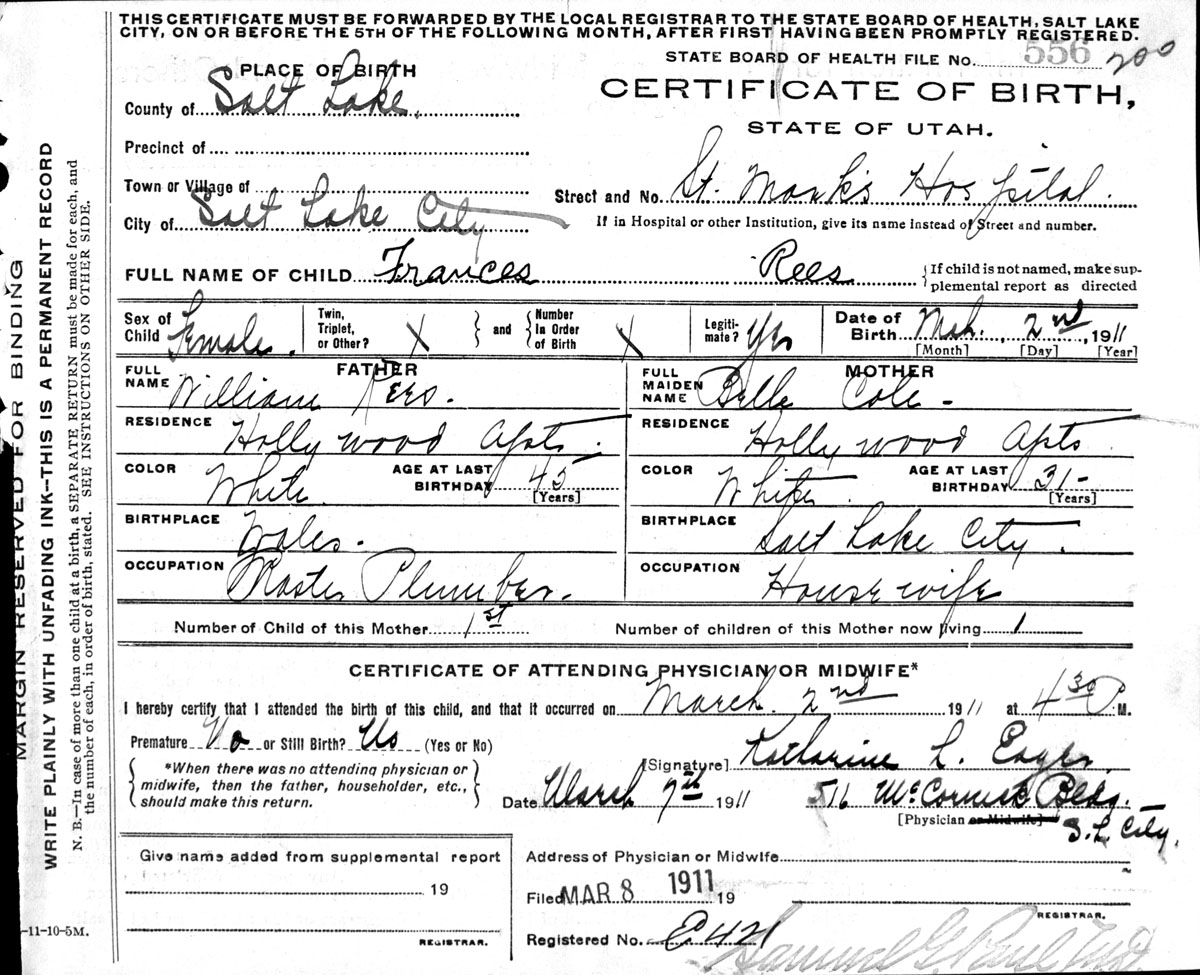 THIS CERTIFICATE MUST BE FORWARDED BY THE LOCAL REGISTRAR TO THE STATE BOARD OF HEALTH, SALT LAKE
CITY, ON OR BEFORE THE 5TH OF THE FOLLOWING MONTH, AFTER FIRST HAVING BEEN PROMPTLY REGISTERED.
STATE BOARD OF HEALTH FILE No. 556 200
PLACE OF BIRTH
CERTIFICATE OF BIRTH,
County of Salt Lake.
STATE OF UTAH.
Precinct of
Town or Village of
Street and No. St. Mark's Hospital.
City of Salt Lake City
If in Hospital or other Institution, give its name instead of Street and number.
FULL NAME OF CHILD Frances Rees
{If child is not named, make sup-
plemental report as directed
Sex of Child Female.
Twin, Triplet, or Other? X
and
Number In Order of Birth X
Legiti-mate? Yes
Date of Birth Mch. 2nd, 1911
[Month] [Day] [Year]
FATHER
FULL NAME William Rees.
MOTHER
FULL MAIDEN NAME Belle Cole -
RESIDENCE Hollywood Apts.
RESIDENCE Hollywood Apts
COLOR White
AGE AT LAST BIRTHDAY 45
[Years]
COLOR White.
AGE AT LAST BIRTHDAY 31-
[Years]
BIRTHPLACE Wales.
BIRTHPLACE Salt Lake City.
OCCUPATION Master Plumber.
OCCUPATION Housewife
Number of Child of this Mother 1st
Number of children of this Mother now living 1
CERTIFICATE OF ATTENDING PHYSICIAN OR MIDWIFE*
I hereby certify that I attended the birth of this child, and that it occurred on March. 2nd 1911 at 4 30 P M.
Premature No or Still Birth? No (Yes or No)
*When there was no attending physician or
midwife, then the father, householder, etc.,
should make this return.
[Signature] Katharine L.
Date March 7th 1911
516 McCornick Bldg.
[Physician or Midwife] S. L. City.
Give name added from supplemental report
19
REGISTRAR.
Address of Physician or Midwife
Filed MAR 8 1911 19
REGISTRAR.
Registered No. E421
Samuel G. Paul
MARGIN RESERVED FOR BINDING
WRITE PLAINLY WITH UNFADING INK—THIS IS A PERMANENT RECORD
N. B.—In case of more than one child at a birth, a SEPARATE RETURN must be made for each, and
the number of each, in order of birth, stated. SEE INSTRUCTIONS ON OTHER SIDE.
-11-10-5M.